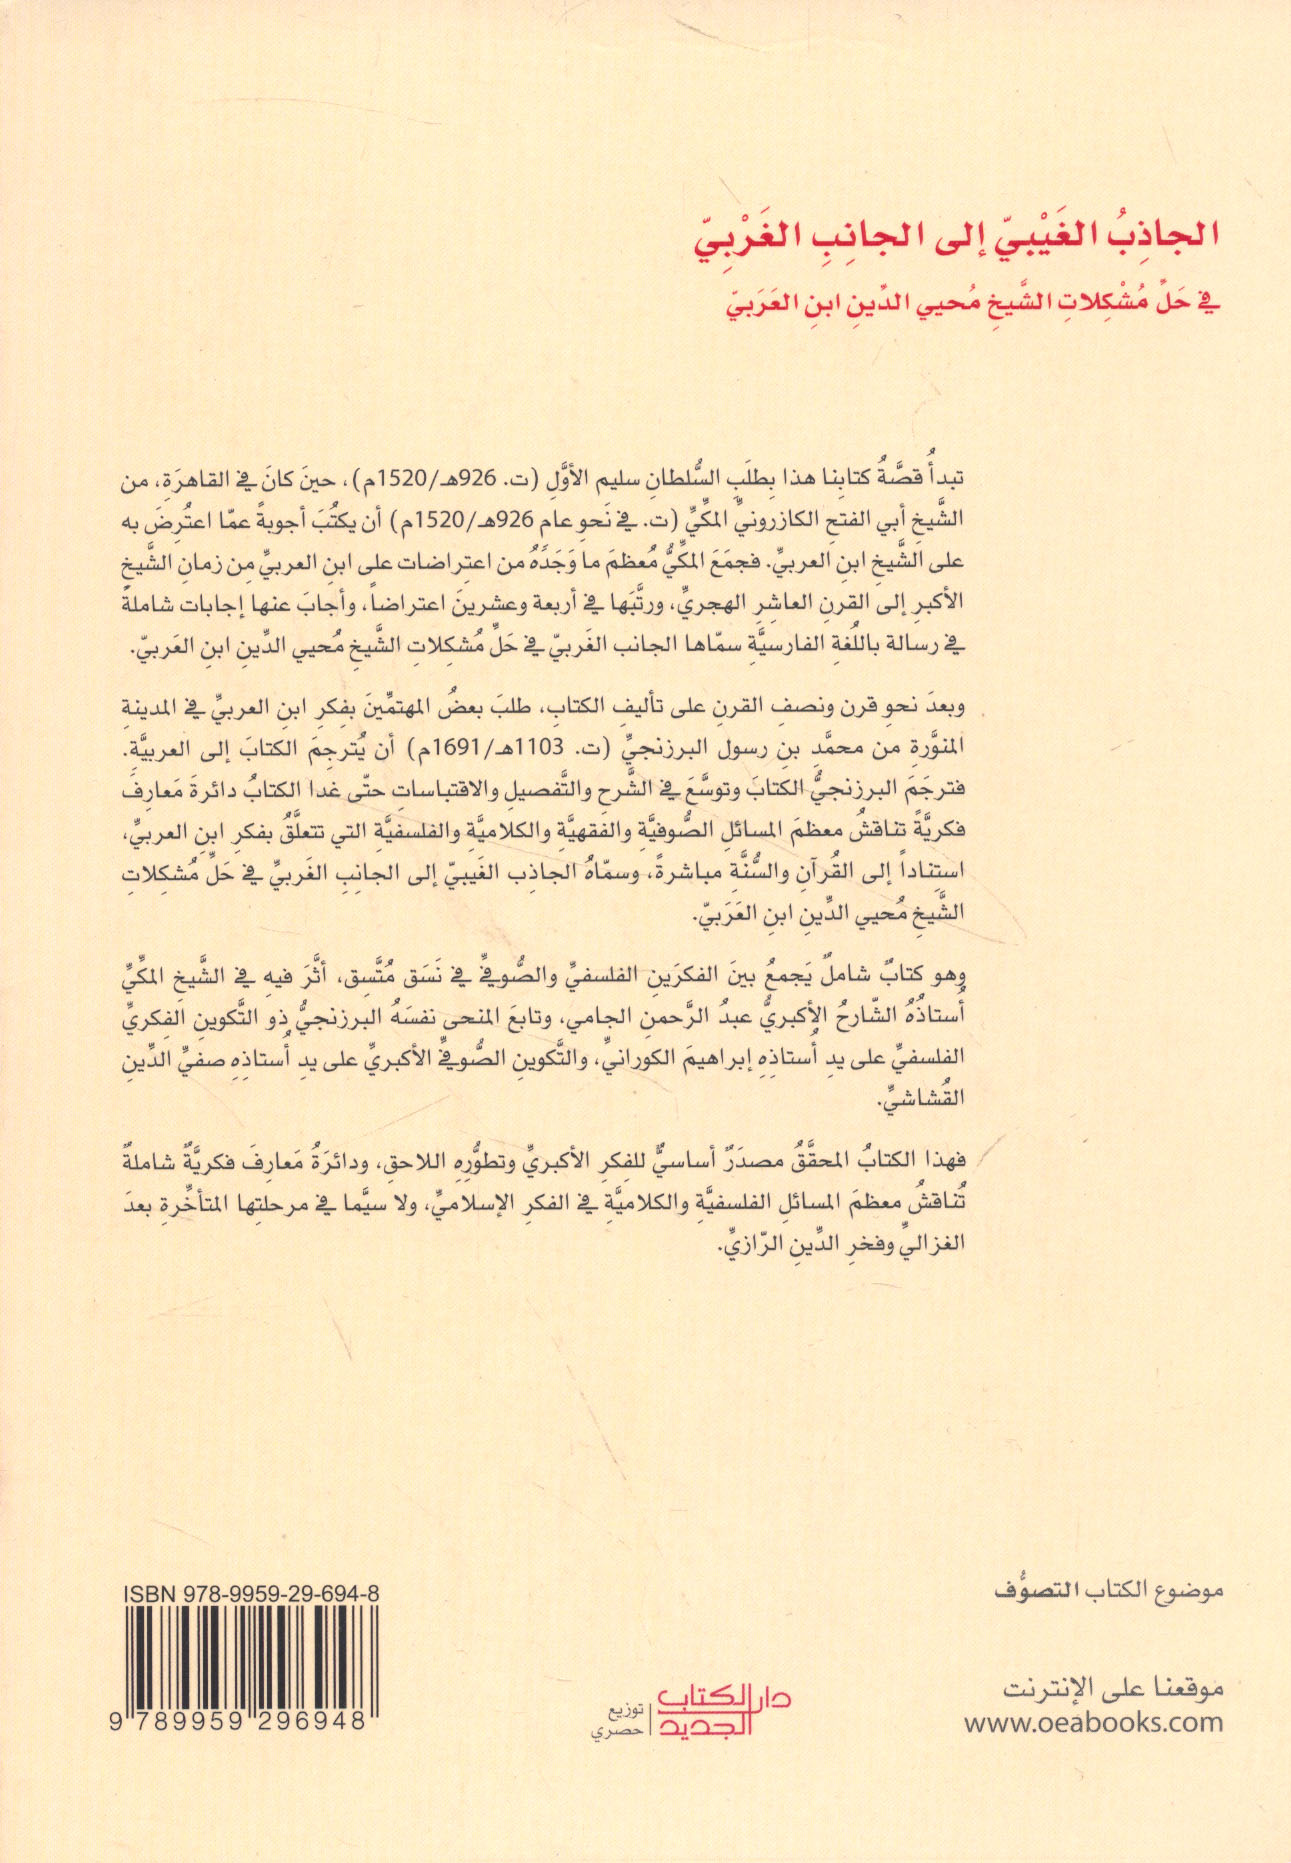 الجاذِبُ الغَيْبيّ إلى الجانِبِ الغَرْبِيّ
في حَلِّ مُشْكِلاتِ الشَّيخِ مُحيي الدِّينِ ابنِ العَرَبيّ
تبدأُ قصَّةُ كتابِنا هذا بِطلَبِ السُّلطانِ سليم الأوَّلِ (ت. 926هـ/1520م)، حينَ كانَ في القاهرَةِ، من
الشَّيخِ أبي الفتحِ الكازرونيِّ المكِّيِّ (ت. في نَحوِ عام 926هـ/1520م) أن يكتُبَ أجوبةً عمّا اعتُرِضَ به
على الشَّيخِ ابنِ العربيِّ. فجمَعَ المكِّيُّ مُعظمَ ما وَجَدَهُ من اعتِراضات على ابنِ العربيِّ مِن زمانِ الشَّيخِ
الأكبرِ إلى القرنِ العاشِرِ الهجريِّ، ورتَّبَها في أربعة وعشرينَ اعتراضاً، وأجابَ عنها إجابات شاملةً
في رسالة باللُغةِ الفارسيَّةِ سمّاها الجانب الغَربيّ في حَلِّ مُشكِلاتِ الشَّيخِ مُحيي الدِّينِ ابنِ العَربيّ.
وبعدَ نحوِ قرن ونصفِ القرنِ على تأليفِ الكتابِ، طلبَ بعضُ المهتمِّينَ بفِكرِ ابنِ العربيِّ في المدينةِ
المنوَّرةِ من محمَّدِ بنِ رسول البرزنجيِّ (ت. 1103هـ/1691م) أن يُترجِمَ الكتابَ إلى العربيَّةِ.
فترجَمَ البرزنجيُّ الكتابَ وتوسَّعَ في الشَّرحِ والتَّفصيلِ والاقتباساتِ حتّى غدا الكتابُ دائرةَ مَعارِفَ
فكريَّةً تناقشُ معظمَ المسائلِ الصُّوفيَّةِ والفقهيَّةِ والكلاميَّةِ والفلسفيَّةِ التي تتعلَّقُ بفكرِ ابنِ العربيِّ،
استِناداً إلى القُرآنِ والسُّنَّةِ مباشرةً، وسمّاهُ الجاذِب الغَيبيّ إلى الجانِبِ الغَربيِّ في حَلِّ مُشكِلاتِ
الشَّيخِ مُحيي الدِّينِ ابنِ العَرَبيّ.
وهو كتابٌ شاملٌ يَجمعُ بينَ الفكرَينِ الفلسفيِّ والصُّوفيِّ في نَسَق مُتَّسِق، أثَّرَ فيهِ في الشَّيخِ المكِّيِّ
أُستاذُهُ الشّارحُ الأكبريُّ عبدُ الرَّحمنِ الجامي، وتابعَ المنحى نفسَهُ البرزنجيُّ ذو التَّكوينِ الفِكريِّ
الفلسفيِّ على يدِ أُستاذِهِ إبراهيمَ الكورانيِّ، والتَّكوينِ الصُّوفيِّ الأكبريِّ على يدِ أُستاذِهِ صفيِّ الدِّينِ
القُشاشيِّ.
فهذا الكتابُ المحقَّقُ مصدَرٌ أساسيٌّ للفِكرِ الأكبريِّ وتطوُّرِهِ اللاحقِ، ودائرَةُ مَعارِفَ فكريَّةٌ شاملةٌ
تُناقشُ معظمَ المسائلِ الفلسفيَّةِ والكلاميَّةِ في الفكرِ الإسلاميِّ، ولا سيَّما في مرحلتِها المتأخِّرةِ بعدَ
الغزاليِّ وفخرِ الدِّينِ الرّازيِّ.
موضوع الكتاب التصوُّف
موقعنا على الإنترنت
www.oeabooks.com
دار الكتاب
الجديد
توزيع
حصري
ISBN 978-9959-29-694-8
9 789959 296948